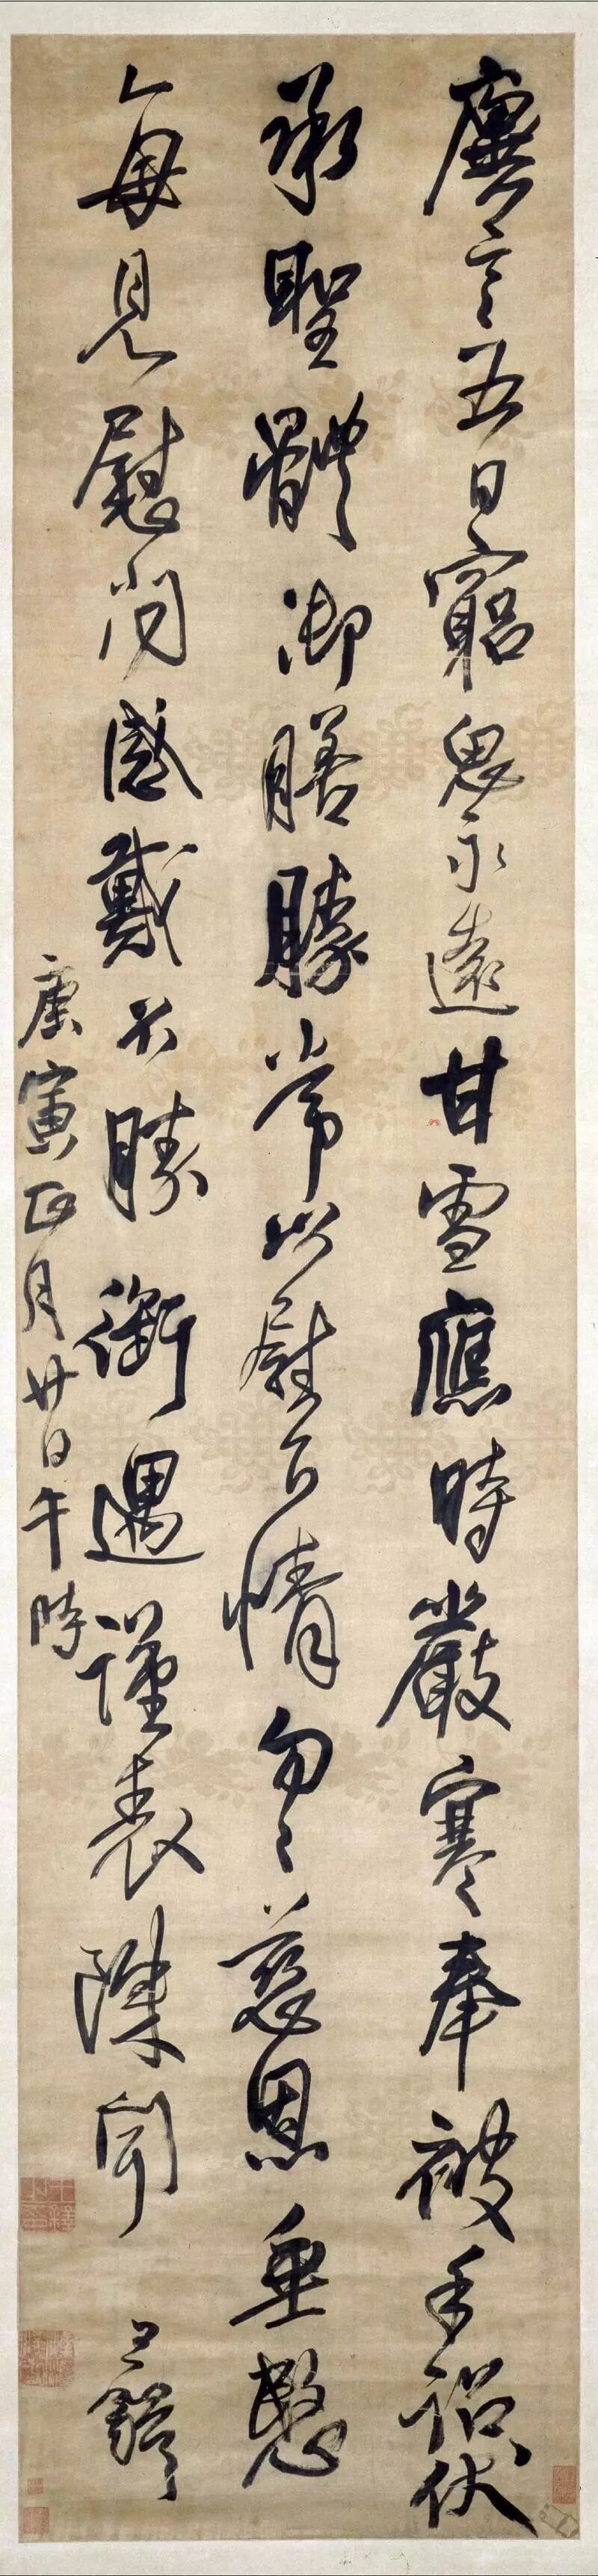 廙言五日窮思永遠甘雪應時嚴寒奉被手詔伏
承聖體御膳勝常以慰下情匆〻慈恩垂愍
每見慰問感戴不勝銜遇謹表陳聞 王鐸
庚寅正月廿日午時